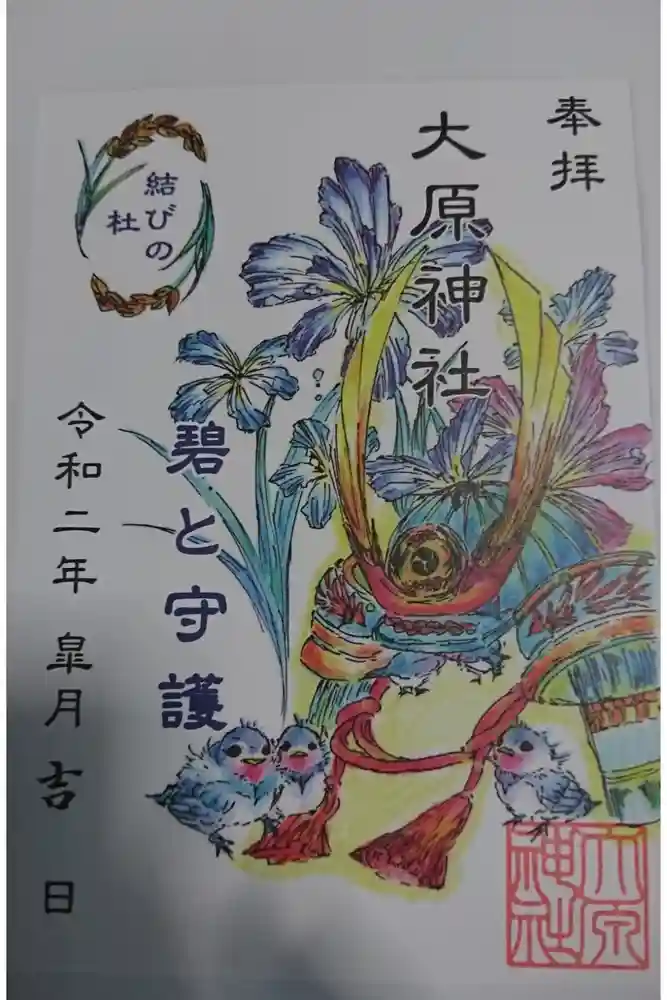 奉拝
大原神社
碧と守護
結びの
杜
令和二年 皐月吉 日
大原
神社